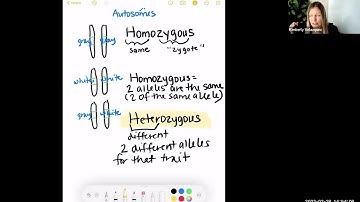 Autosomes
gray gray Homozygous
same "zygote"
white white Homozygous =
2 alleles are the same
(2 of the same allele)
gray white Heterozygous
different
2 different alleles
for that trait